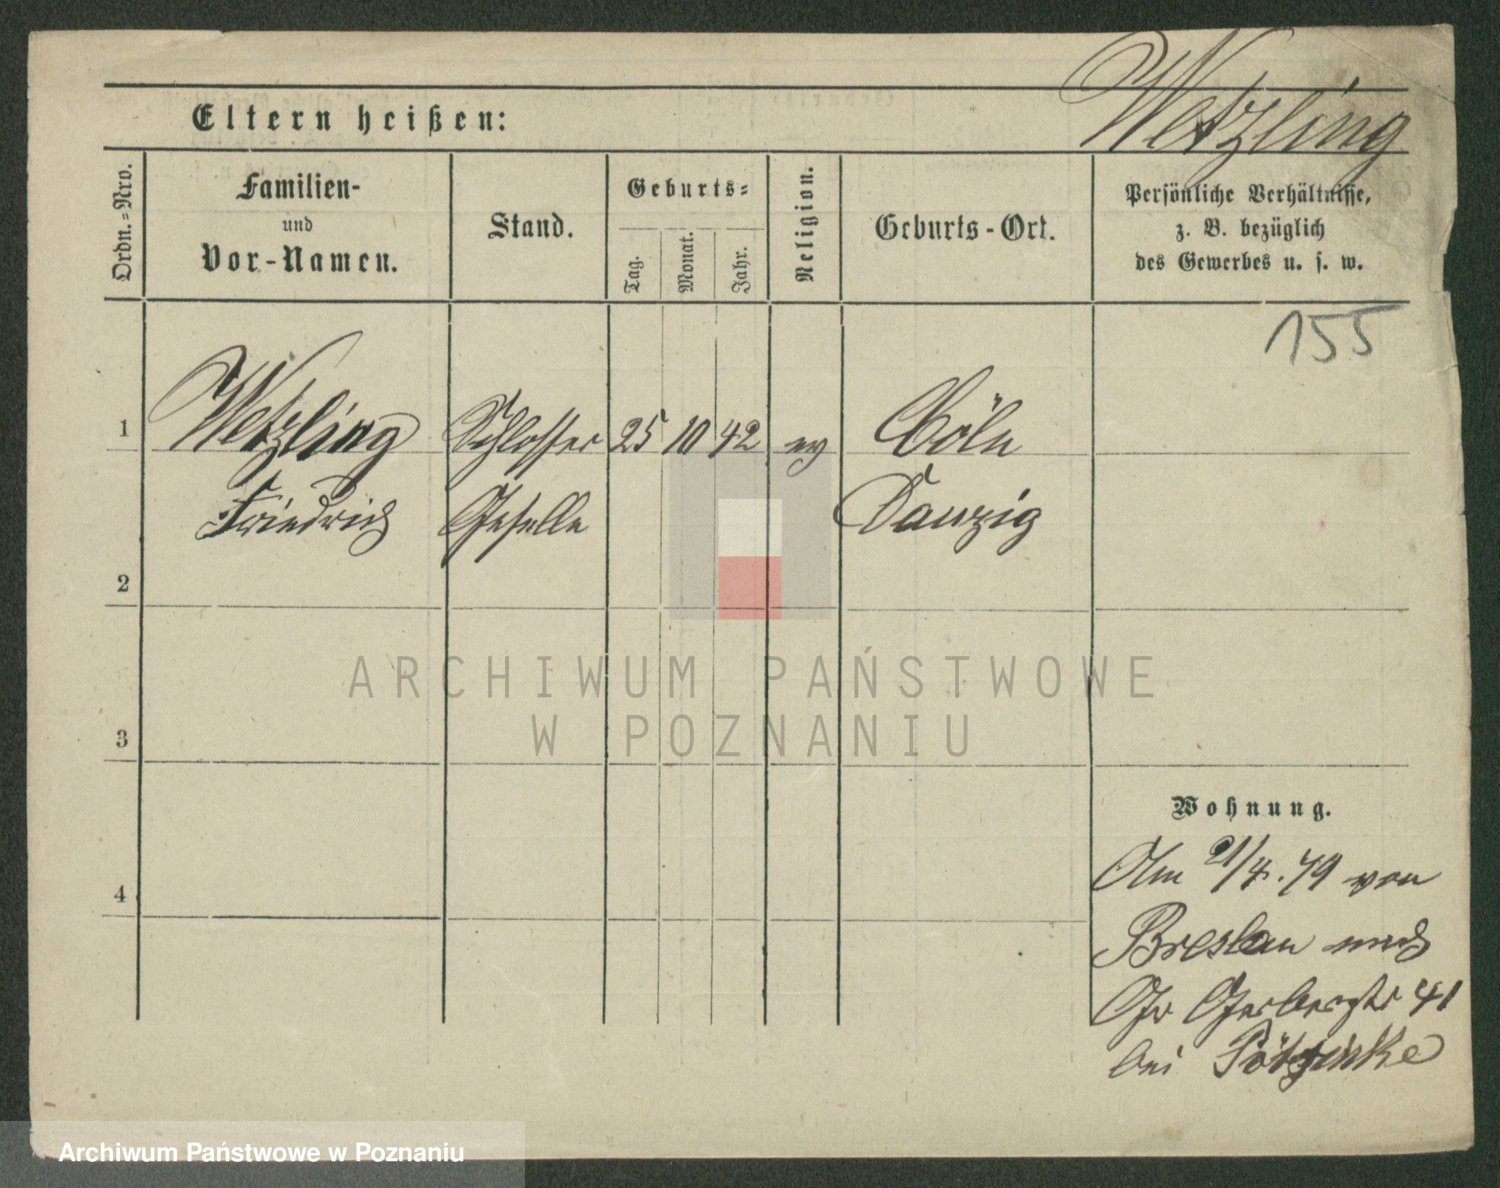 Wetzling
Eltern heißen:
Ordn.=Nro.
Familien-
und
Vor-Namen.
Stand.
Geburts=
Tag.
Monat.
Jahr.
Religion.
Geburts-Ort.
Persönliche Verhältnisse,
z. B. bezüglich
des Gewerbes u. s. w.
155
1 Wetzling Schlosser 25 10 42 ev Cöln
Friedrich Geselle Danzig
2
3
4
ARCHIWUM PAŃSTWOWE
W POZNANIU
Wohnung.
Am 21/4. 79 von
Breslau nach
Gr Gerberstr 41
bei
Archiwum Państwowe w Poznaniu